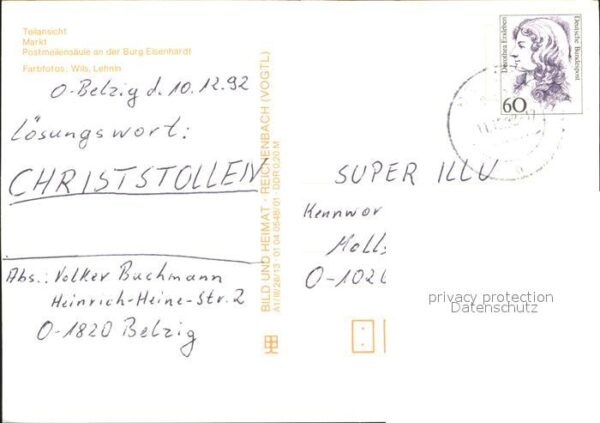 Teilansicht
Markt
Postmeilensäule an der Burg Eisenhardt
Farbfotos: Wils, Lehnin
O-Belzig d. 10.12.92
Lösungswort:
CHRISTSTOLLEN
Abs.: Volker Buchmann
Heinrich-Heine-Str. 2
O-1820 Belzig
BILD UND HEIMAT · REICHENBACH (VOGTL)
A1/III/26/13 01 04 0548/01 DDR 0,20 M
Dorothea Erxleben
Deutsche Bundespost
60
SUPER ILLU
Kennwor
O-1026
privacy protection
Datenschutz